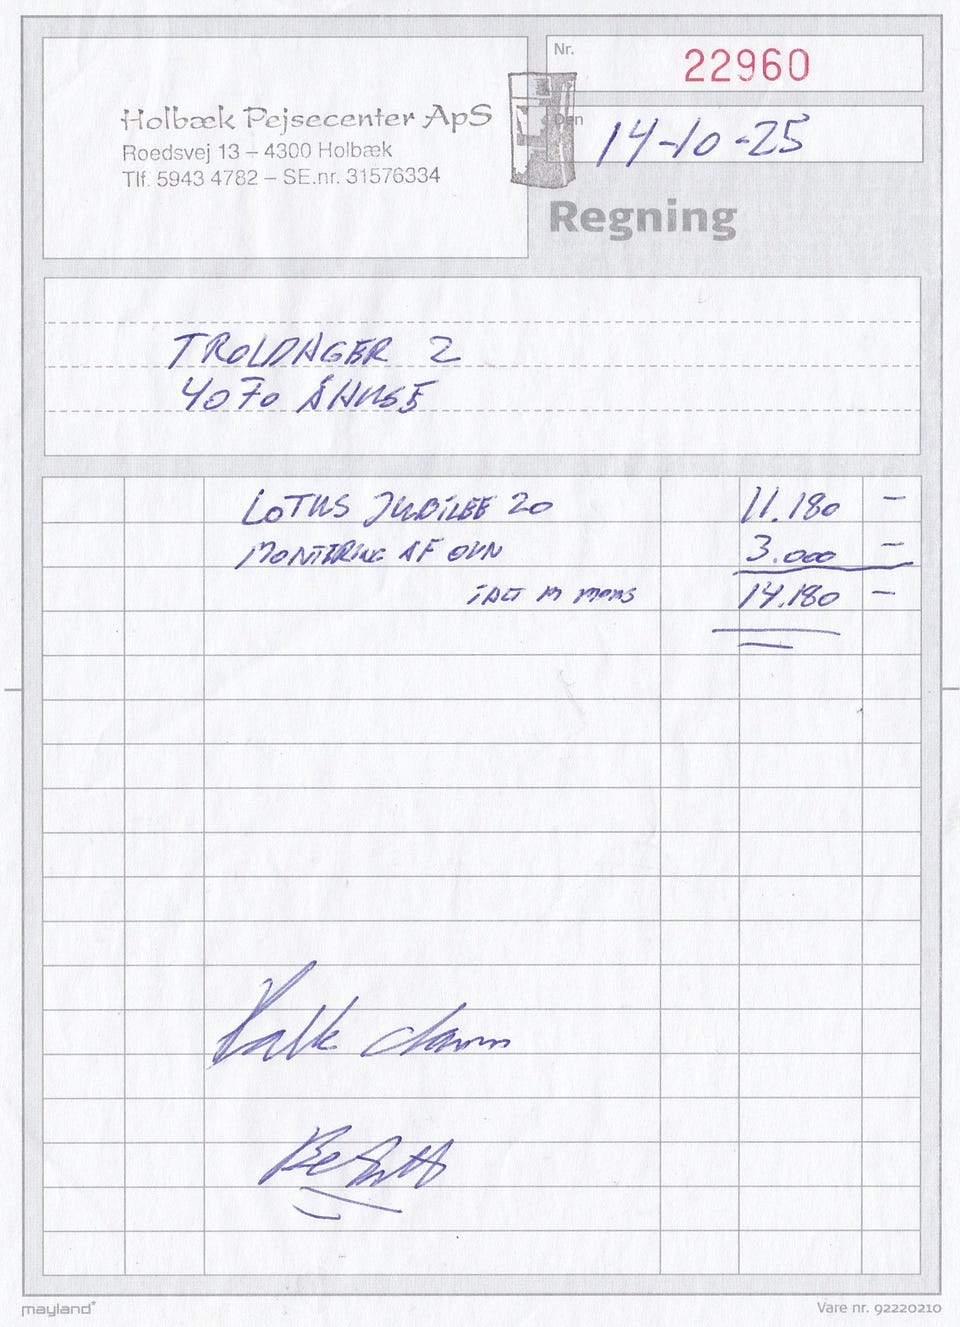 Nr.
22960
Holbæk Pejsecenter ApS
Roedsvej 13 – 4300 Holbæk
Tlf. 5943 4782 – SE.nr. 31576334
Den
14-10-25
Regning
TROLDAGER 2
4070 ÅHUSE
LOTUS JUBILEE 20 11.180 –
MONTERING AF OVN 3.000 –
IALT M MOMS 14.180 –
Betalt
mayland*
Vare nr. 92220210